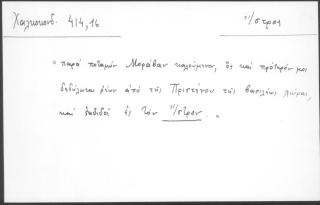 Χαλκοκονδ. 414,16 Ἴστρος
" παρὰ ποταμὸν Μοράβαν καλούμενον, ὃς καὶ πρότερόν μοι
δεδήλωται ῥέων ἀπὸ τῆς Πριστίνου τῆς βασιλέως χώρας,
καὶ ἐκδιδοῖ ἐς τὸν Ἴστρον. "